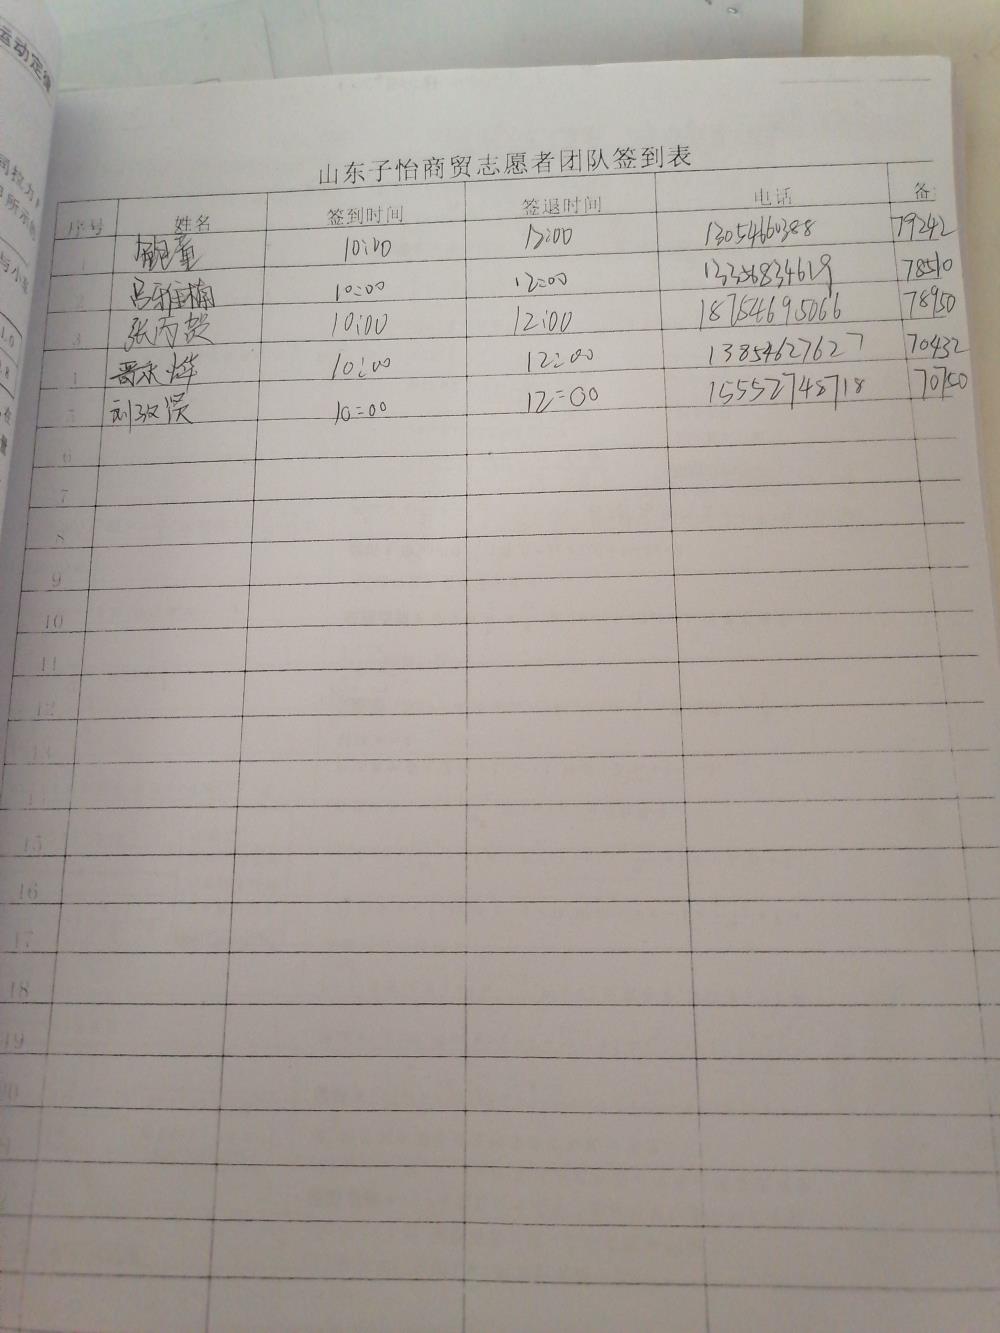 运动定律
山东子怡商贸志愿者团队签到表
序号 姓名 签到时间 签退时间 电话 备
1 鲍童 10:00 12:00 13054660388 79242
2 吕雅楠 10:00 12:00 13356834619 78510
3 张丙贺 10:00 12:00 18754695066 78950
4 10:00 12:00 13854627627 70432
5 10:00 12:00 15552748718 70750
6
7
8
9
10
11
12
13
14
15
16
17
18
19
20